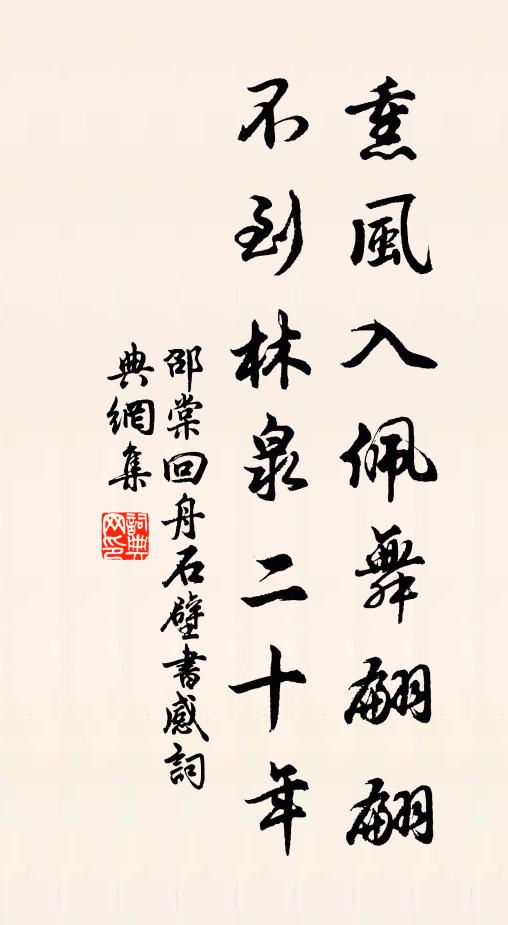 熏風入佩舞翩翩
不到林泉二十年
邵棠回舟石壁書感詞
典網集
詞典
网印